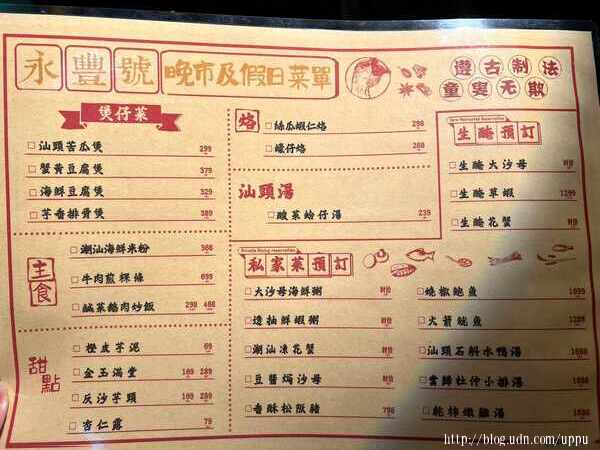 永豐號
晚市及假日菜單
遵古制法
童叟无欺
煲仔菜
汕頭苦瓜煲 299
蟹黃豆腐煲 379
海鮮豆腐煲 329
芋香排骨煲 389
烙
絲瓜蝦仁烙 298
蠔仔烙 268
汕頭湯
酸菜蛤仔湯 239
生醃預訂
生醃大沙母 時價
生醃草蝦 1299
生醃花蟹 時價
主食
潮汕海鮮米粉 368
牛肉煎粿條 699
鹹菜鵝肉炒飯 298 468
甜點
橙皮芋泥 69
金玉滿堂 169 289
反沙芋頭 169 289
杏仁露 79
私家菜預訂
大沙母海鮮粥 時價
透抽鮮蝦粥 時價
潮汕凍花蟹 時價
豆醬焗沙母 時價
香酥松阪豬 798
燒椒鮑魚 1699
火箭魷魚 1299
汕頭石斛水鴨湯 1688
當歸杜仲小排湯 1688
乾柿嫩雞湯 1688
http://blog.udn.com/uppu